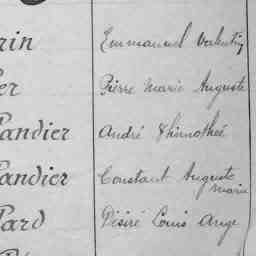 rin Emmanuel Valentin
er Pierre Marie Auguste
Pandier André Thimothée
Pandier Constant Auguste
Marie
Pard Désiré Louis Ange